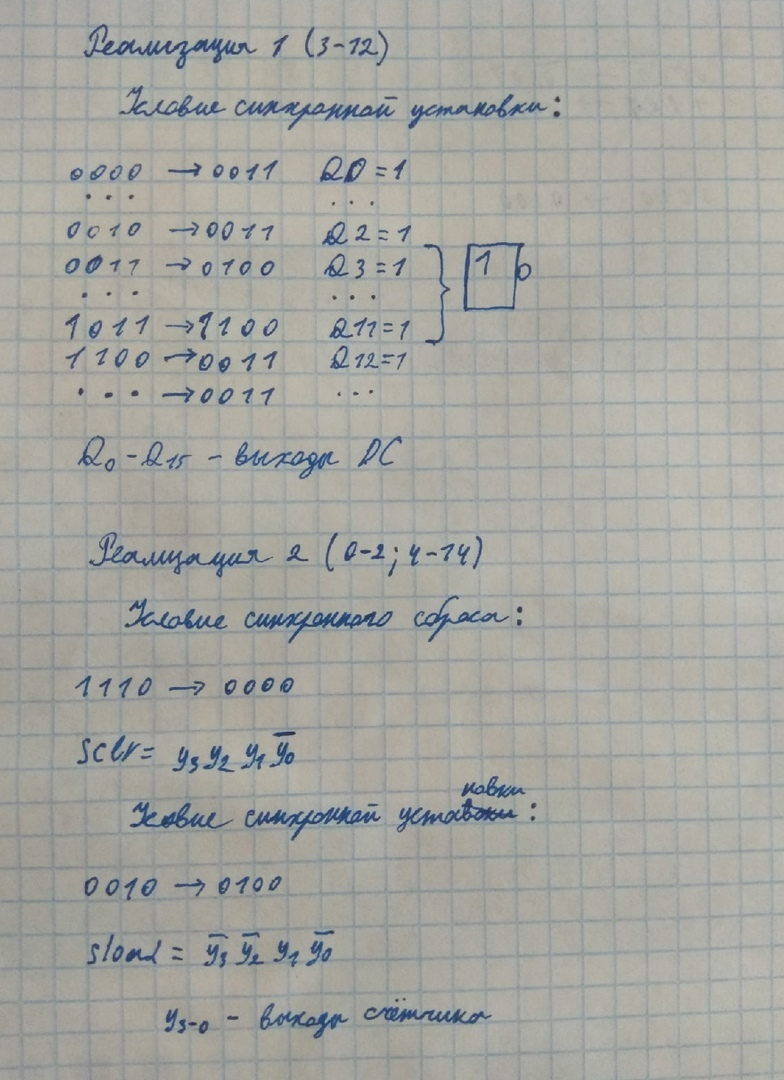 Реализация 1 (3-12)
Условие синхронной установки:
0000 → 0011 Q0=1
... ...
0010 → 0011 Q2=1
0011 → 0100 Q3=1
1
... ...
1011 → 1100 Q11=1
1100 → 0011 Q12=1
... → 0011 ...
Q0-Q15 - выходы DC
Реализация 2 (0-2; 4-14)
Условие синхронного сброса:
1110 → 0000
sclr = y3 y2 y1 y̅0
Условие синхронной установки:
0010 → 0100
sload = y̅3 y̅2 y1 y̅0
y3-0 - выходы счётчика